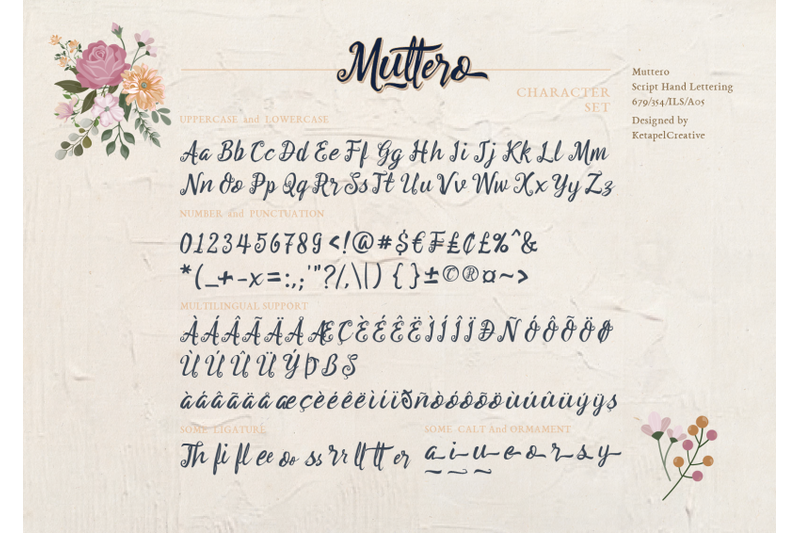 Muttero
CHARACTER
SET
Muttero
Script Hand Lettering
679/354/ILS/A05
Designed by
KetapelCreative
UPPERCASE and LOWERCASE
Aa Bb Cc Dd Ee Ff Gg Hh Ii Jj Kk Ll Mm
Nn Oo Pp Qq Rr Ss Tt Uu Vv Ww Xx Yy Zz
NUMBER and PUNCTUATION
0123456789<!@#$€₣₤₵£%^&
*(_+-x=:,;'"?/,\|) { }±©®¤~>
MULTILINGUAL SUPPORT
ÀÁÂÃÄÅÆÇÈÉÊËÌÍÎÏÐÑÓÔÕÖØ
ÙÚÛÜÝÞßŞ
àáâãäåæçèéêëìíîïðñòóôõöùúûüýÿş
SOME LIGATURE
Th fi fl ee oo ss rr ll tt er
SOME CALT and ORNAMENT
a i u e o r s y